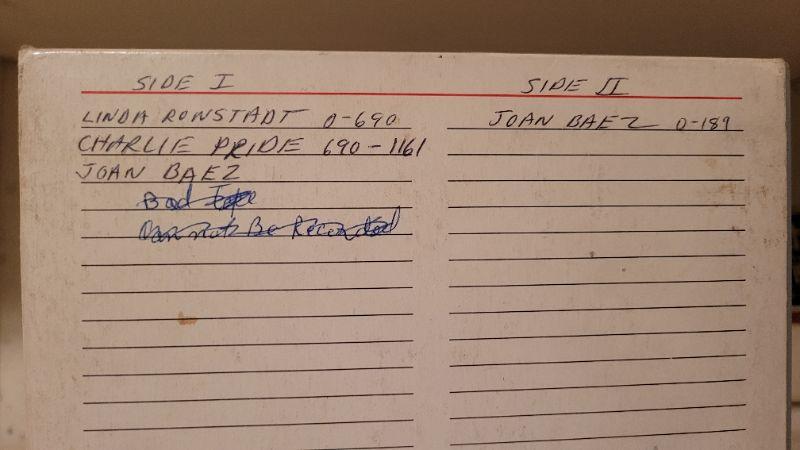 SIDE I
LINDA RONSTADT 0-690
CHARLIE PRIDE 690-1161
JOAN BAEZ
Bad Tape
Can not Be Recorded
SIDE II
JOAN BAEZ 0-189